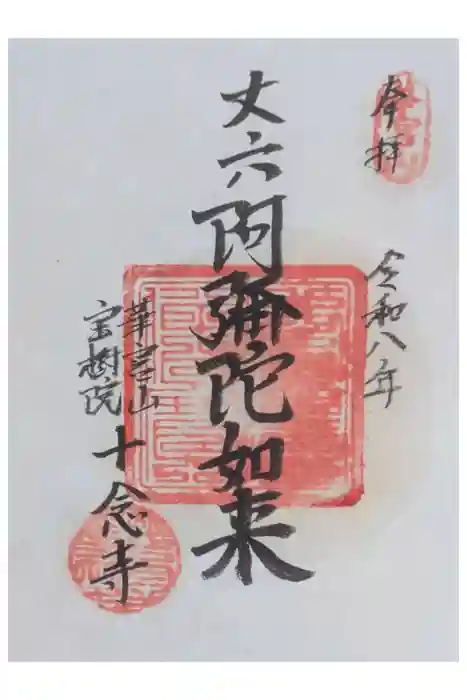 奉拝
令和八年
丈六阿彌陀如来
華宮山
宝樹院
十念寺